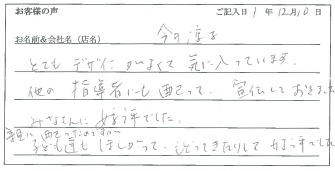 お客様の声 ご記入日 1 年 12月10日
お名前&会社名(店名) 今 淳子
とても デザインがよくて 気に入っています。
他の 指導者にも 配って、宣伝しておきました
みなさんに 好評でした。
親に 配ったのですが
子ども達も ほしがって、もどってきたりして 好評でした